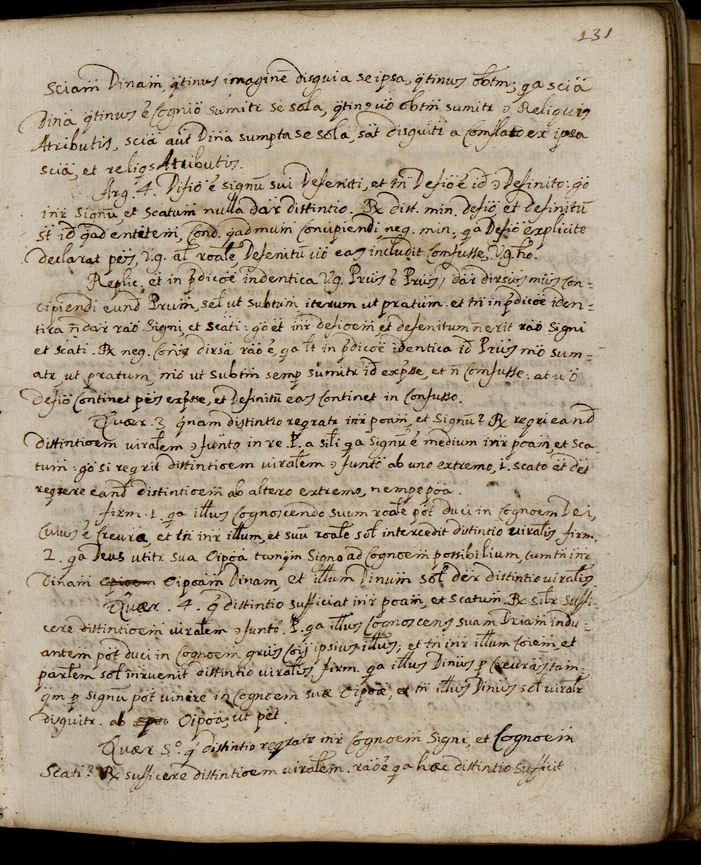 131
Sciam̄ Dinam̄, q̄tinus imagine disguia se ipsa, q̄tinus obtm̄; q̄a sciā
Dinā q̄tinus ē Cognio sumitr se sola, q̄tinus uō obtm̄ sumitr ɔ Reliquis
Atributis, sciā aut Dinā sumpta se sola, sat disguitr a Conflato ex ipsa
sciā, et religs Atributis.
Arg. 4. Difio ē signū sui Definiti, et tn̄ Defio ē id ɔ Definito: gō
inr Signū, et Scatum nulla dar distintio. ℞ dist. min. defio, et definitū
st id quad entitem, Cond. quad mum Concipiendi neg. min. q̄a Defio explicite
declarat p̄es, V.g. al̄ roale Definitū uō eas includit Confusse, V.g. ho.
Replic, et in p̄dicōe indentica V.g. Prius ē Prius, dar dirsus mus con-
cipiendi eund Prum, sel ut subtum iterum ut pratum: et tn̄ in p̄dicōe iden-
tica n̄ dar rao Signi, et scati: gō et inr defioem et definitum n̄ erit rao Signi
et scati. ℞ neg. Conq̄ dirsa rao ē, q̄a lt in p̄dicōe identica id Prius mō sum-
atr ut pratum, mō ut Subtm̄ semp sumitr id exp̄sse, et n̄ Confusse: at uō
Defiō Continet p̄es exp̄sse, et Definitū eas Continet in Confusso.
Quær. 3 q̄nam distintio reqratr inr poam̄, et Signū? ℞ reqri eand
distintioem viralem ɔ funto in re. P. a sili q̄a Signū ē medium inr poam̄, et Sca-
tum: gō si reqrit distintioem viralem ɔ funto ab uno extremo, i. scato et det
reqrere eand distintioem̄ ab altero extremo, nempe poa.
firm. 1. q̄a illus Cognoscendo Suum roale pot duci in Cognoem Dei,
Cuius ē Creura, et tn̄ inr illum, et suū roale sol intercedit distintio viralis, firm.
2. q̄a Deus utitr sua Oipoa tanqm Signo ad Cognoem possibilium, cum tn̄ inr
Dinam Oipoam̄ Dinam, et illum Dinum sol detr distintio viralis
Quær. 4. q̄ distintio sufficiat inr poam, et Scatum. ℞ silr Suffi-
cere distintioem̄ viralem ɔ funto. P. q̄a illus Cognoscens suam Driam indu-
antem pot duci in Cognoem qriis Cois ipsius illus; et tn̄ inr illum Coiem, et
parlem sol inruenit distintio viralis firm. q̄a illus Dinus p Creuras tam-
q̄m p signum pot uinere in Cognoem suæ Oipoæ, et tn̄ illus Dinus sol viralr
disguitr. ab Oipoa, ut pet.
Quær 5º. q̄ distintio reqratr inr Cognoem̄ Signi, et Cognoem̄
Scati? ℞ sufficere distintioem viralem. rao ē q̄a hæc distintio Sufficit